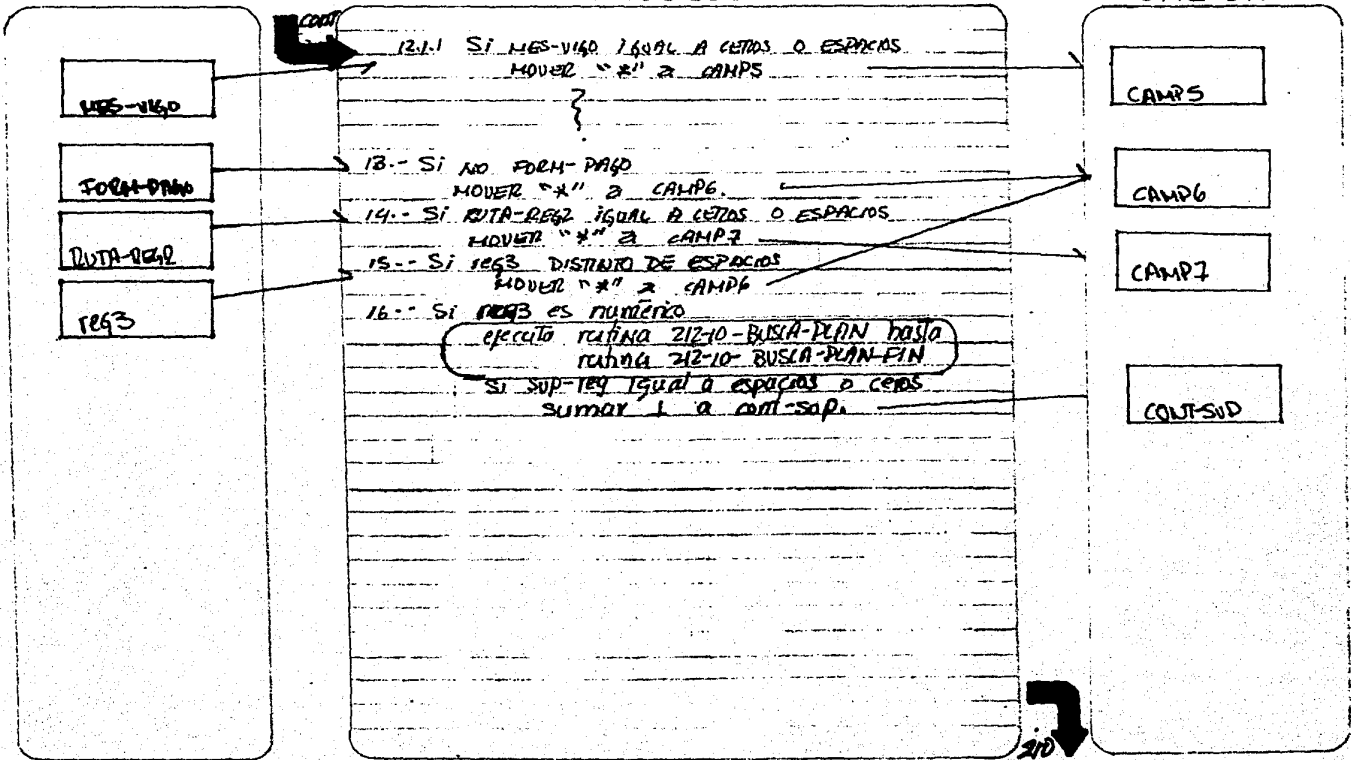 CONT
12.1.1 Si MES-VIGO IGUAL A CEROS O ESPACIOS
MOVER "*" a CAMP5
13.- Si NO FORM-PAGO
MOVER "*" a CAMP6.
14.- Si RUTA-REGR IGUAL A CEROS O ESPACIOS
MOVER "*" a CAMP7
15.- Si reg3 DISTINTO DE ESPACIOS
MOVER "*" a CAMP6
16.- Si reg3 es numérico
ejecuto rutina 212-10-BUSCA-PLAN hasta
rutina 212-10-BUSCA-PLAN-FIN
Si sup-reg igual a espacios o ceros
sumar 1 a cont-sup.
MES-VIGO
FORM-PAGO
RUTA-REGR
reg3
CAMP5
CAMP6
CAMP7
CONT-SUP
210